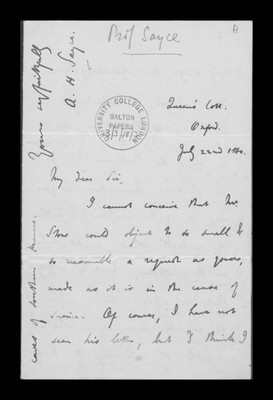 Prof Sayce
UNIVERSITY COLLEGE LONDON
GALTON
PAPERS
Queen's Coll.
Oxford.
July 22nd 1880.
My dear Sir,
I cannot conceive that Mr.
could object to so small &
so reasonable a request as yours,
made as it is in the cause of
science. Of course, I have not
seen his letter, but I think I
caves of southern
Yours very faithfully
A. H. Sayce.